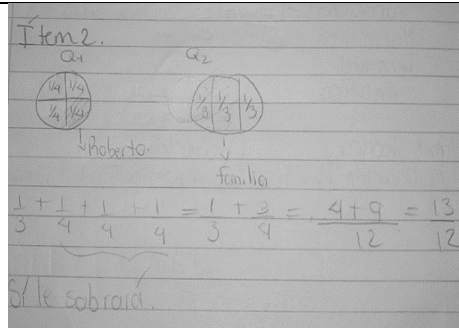 Ítem 2.
Q1 Q2
1/4 1/4
1/4 1/4
1/3 1/3 1/3
Roberto.
familia
1/3 + 1/4 + 1/4 + 1/4 = 1/3 + 3/4 = 4+9/12 = 13/12
Sí le sobrará.